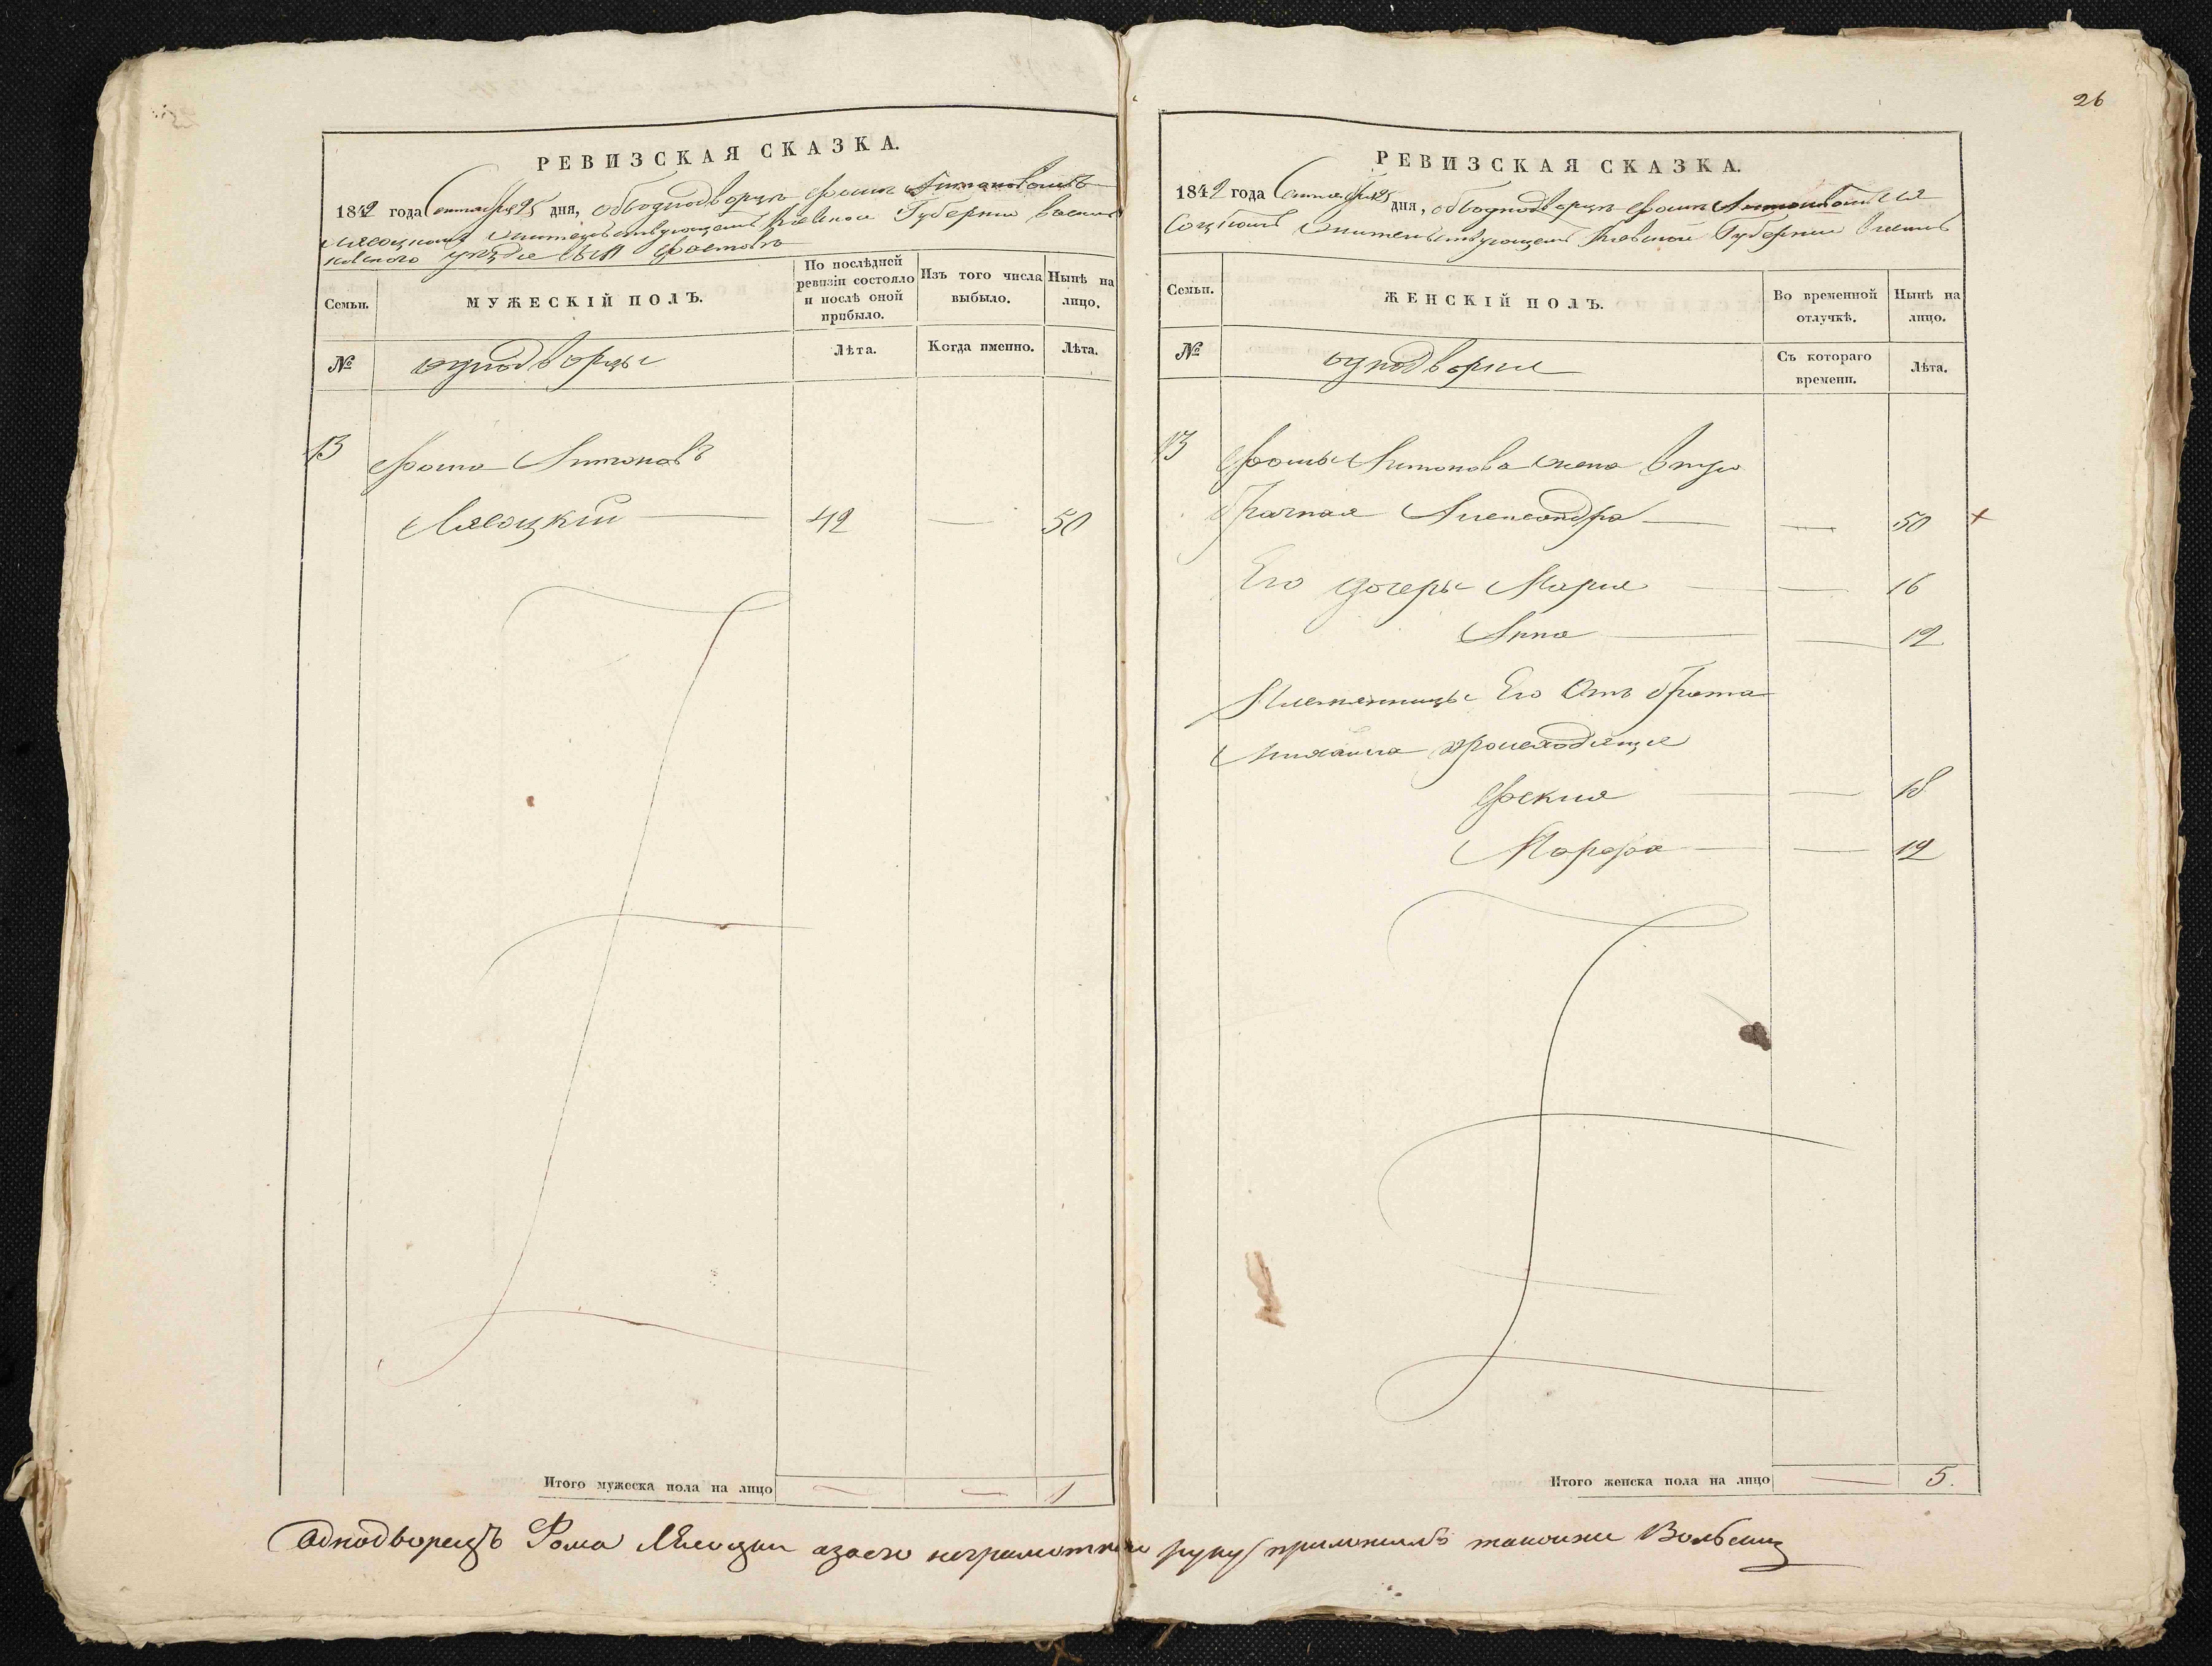 26
РЕВИЗСКАЯ СКАЗКА.
1842 года Сентября 25 дня, объ однодворцѣ Фомѣ Антоновомъ
жительствующемъ Кіевской Губерніи Василь
ковскаго уѣзда
Семьи.
МУЖЕСКІЙ ПОЛЪ.
По послѣдней ревизіи состояло и послѣ оной прибыло.
Изъ того числа выбыло.
Нынѣ на лицо.
№
однодворцы
Лѣта.
Когда именно.
Лѣта.
13 Фома Антоновъ
Лясоцкій — 42 — 50
Итого мужеска пола на лицо — — 1
РЕВИЗСКАЯ СКАЗКА.
1842 года Сентября 25 дня, объ однодворцѣ Фомѣ Антоновомъ Ля
соцкомъ жительствующемъ Кіевской Губерніи Василь
Семьи.
ЖЕНСКІЙ ПОЛЪ.
Во временной отлучкѣ.
Нынѣ на лицо.
№
однодворки
Съ котораго времени.
Лѣта.
13 Фомы Антонова жена втро
брачная Александра — — 50
Его дочери Марія — — 16
Анна — — 12
Племянницы Его Отъ брата
Михайла происходящие
Фекла — — 18
Марфа — — 12
Итого женска пола на лицо — 5.
Однодворецъ Фома Лясоцки азаего неграмотнаго руку приложилъ